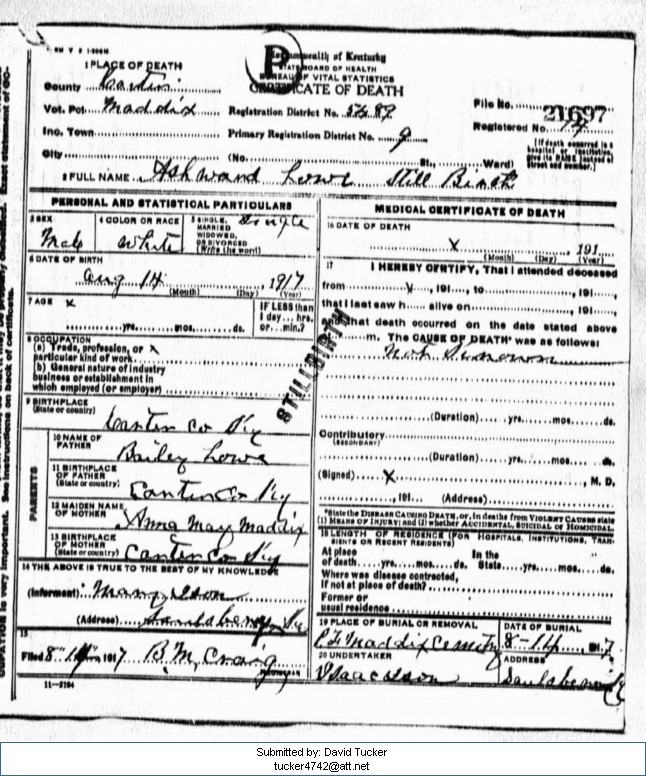 Commonwealth of Kentucky
STATE BOARD OF HEALTH
BUREAU OF VITAL STATISTICS
CERTIFICATE OF DEATH
1 PLACE OF DEATH
County Carter
Vot. Pct. Maddix Registration District No. 5489 File No. 21697
Inc. Town Primary Registration District No. 9 Registered No.
[If death occurred in a hospital or institution, give its NAME instead of street and number.]
City (No. St., Ward)
2 FULL NAME Ashward Lowe Still Birth
PERSONAL AND STATISTICAL PARTICULARS
3 SEX Male
4 COLOR OR RACE White
5 SINGLE, MARRIED WIDOWED, OR DIVORCED (Write the word) Single
6 DATE OF BIRTH
Aug 14, 1917
(Month) (Day) (Year)
7 AGE x
yrs. mos. ds.
IF LESS than 1 day... hrs. or... min.?
8 OCCUPATION
(a) Trade, profession, or x
particular kind of work
(b) General nature of industry
business or establishment in
which employed (or employer)
9 BIRTHPLACE
(State or country)
Carter Co Ky
PARENTS
10 NAME OF FATHER
Bailey Lowe
11 BIRTHPLACE OF FATHER
(State or country)
Carter Co Ky
12 MAIDEN NAME OF MOTHER
Anna May Maddix
13 BIRTHPLACE OF MOTHER
(State or country) Carter Co Ky
14 THE ABOVE IS TRUE TO THE BEST OF MY KNOWLEDGE
(Informant)
(Address) Ky
15
Filed 8" 14", 1917 B.M. Craig
11-3184
STILLBIRTH
MEDICAL CERTIFICATE OF DEATH
16 DATE OF DEATH
x, 191
(Month) (Day) (Year)
17 I HEREBY CERTIFY, That I attended deceased
from, 191..., to, 191...,
that I last saw h... alive on, 191...,
and that death occurred on the date stated above
m. The CAUSE OF DEATH* was as follows:
(Duration) yrs. mos. ds.
Contributory
(SECONDARY)
(Duration) yrs. mos. ds.
(Signed) X, M. D.
, 191... (Address)
*State the DISEASE CAUSING DEATH, or, in deaths from VIOLENT CAUSES state
(1) MEANS OF INJURY; and (2) whether ACCIDENTAL, SUICIDAL or HOMICIDAL.
18 LENGTH OF RESIDENCE (FOR HOSPITALS, INSTITUTIONS, TRANSIENTS OR RECENT RESIDENTS)
At place of death yrs. mos. ds. In the State yrs. mos. ds.
Where was disease contracted,
If not at place of death?
Former or
usual residence
19 PLACE OF BURIAL OR REMOVAL
Maddix
DATE OF BURIAL
8-14 1917
20 UNDERTAKER
ADDRESS
Submitted by: David Tucker
tucker4742@att.net